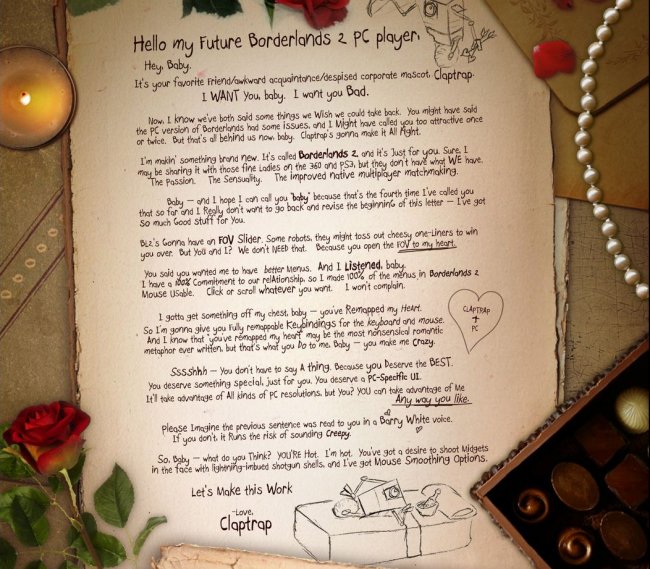 Hello my Future Borderlands 2 PC player,
Hey, Baby.
It's your favorite friend/awkward acquaintance/despised corporate mascot, Claptrap.
I WANT You, baby. I want you Bad.
Now, I know we've both said some things we Wish we could take back. You might have said
the PC version of Borderlands had some issues, and I Might have called you too attractive once
or twice. But that's all behind us now, baby. Claptrap's gonna make it All Right.
I'm makin' something brand new. It's called Borderlands 2, and it's Just for you. Sure, I
may be sharing it with those fine Ladies on the 360 and PS3, but they don't have what WE have.
The Passion. The Sensuality. The improved native multiplayer matchmaking.
Baby — and I hope I can call you "baby" because that's the fourth time I've called you
that so far and I Really don't want to go back and revise the beginning of this letter — I've got
so much Good stuff for You.
BL2's Gonna have an FOV Slider. Some robots, they might toss out cheesy one-liners to win
you over. But You and I? We don't NEED that. Because you open the FOV to my heart.
You said you wanted me to have better Menus. And I Listened, baby.
I have a 100% Commitment to our relationship, so I made 100% of the menus in Borderlands 2
Mouse Usable. Click or Scroll whatever you want. I won't complain.
I gotta get something off my chest, baby — you've Remapped my Heart.
So I'm gonna give you Fully remappable Keybindings for the keyboard and mouse.
And I know that 'you've remapped my heart' may be the most nonsensical romantic
metaphor ever written, but that's what you Do to me, Baby — you make me Crazy.
CLAPTRAP
+
PC
Sssshhh — You don't have to say A thing. Because you Deserve the BEST.
You deserve something special, just for you. You deserve a PC-Specific UI.
It'll take advantage of All kinds of PC resolutions, but You? YOU can take advantage of Me
Any way you like.
Please Imagine the previous sentence was read to you in a Barry White voice.
If you don't, it Runs the risk of sounding Creepy.
So, Baby — what do you Think? YOU'RE Hot. I'm hot. You've got a desire to shoot Midgets
in the face with lightning-imbued shotgun shells, and I've got Mouse Smoothing Options.
Let's Make this Work
-Love,
Claptrap